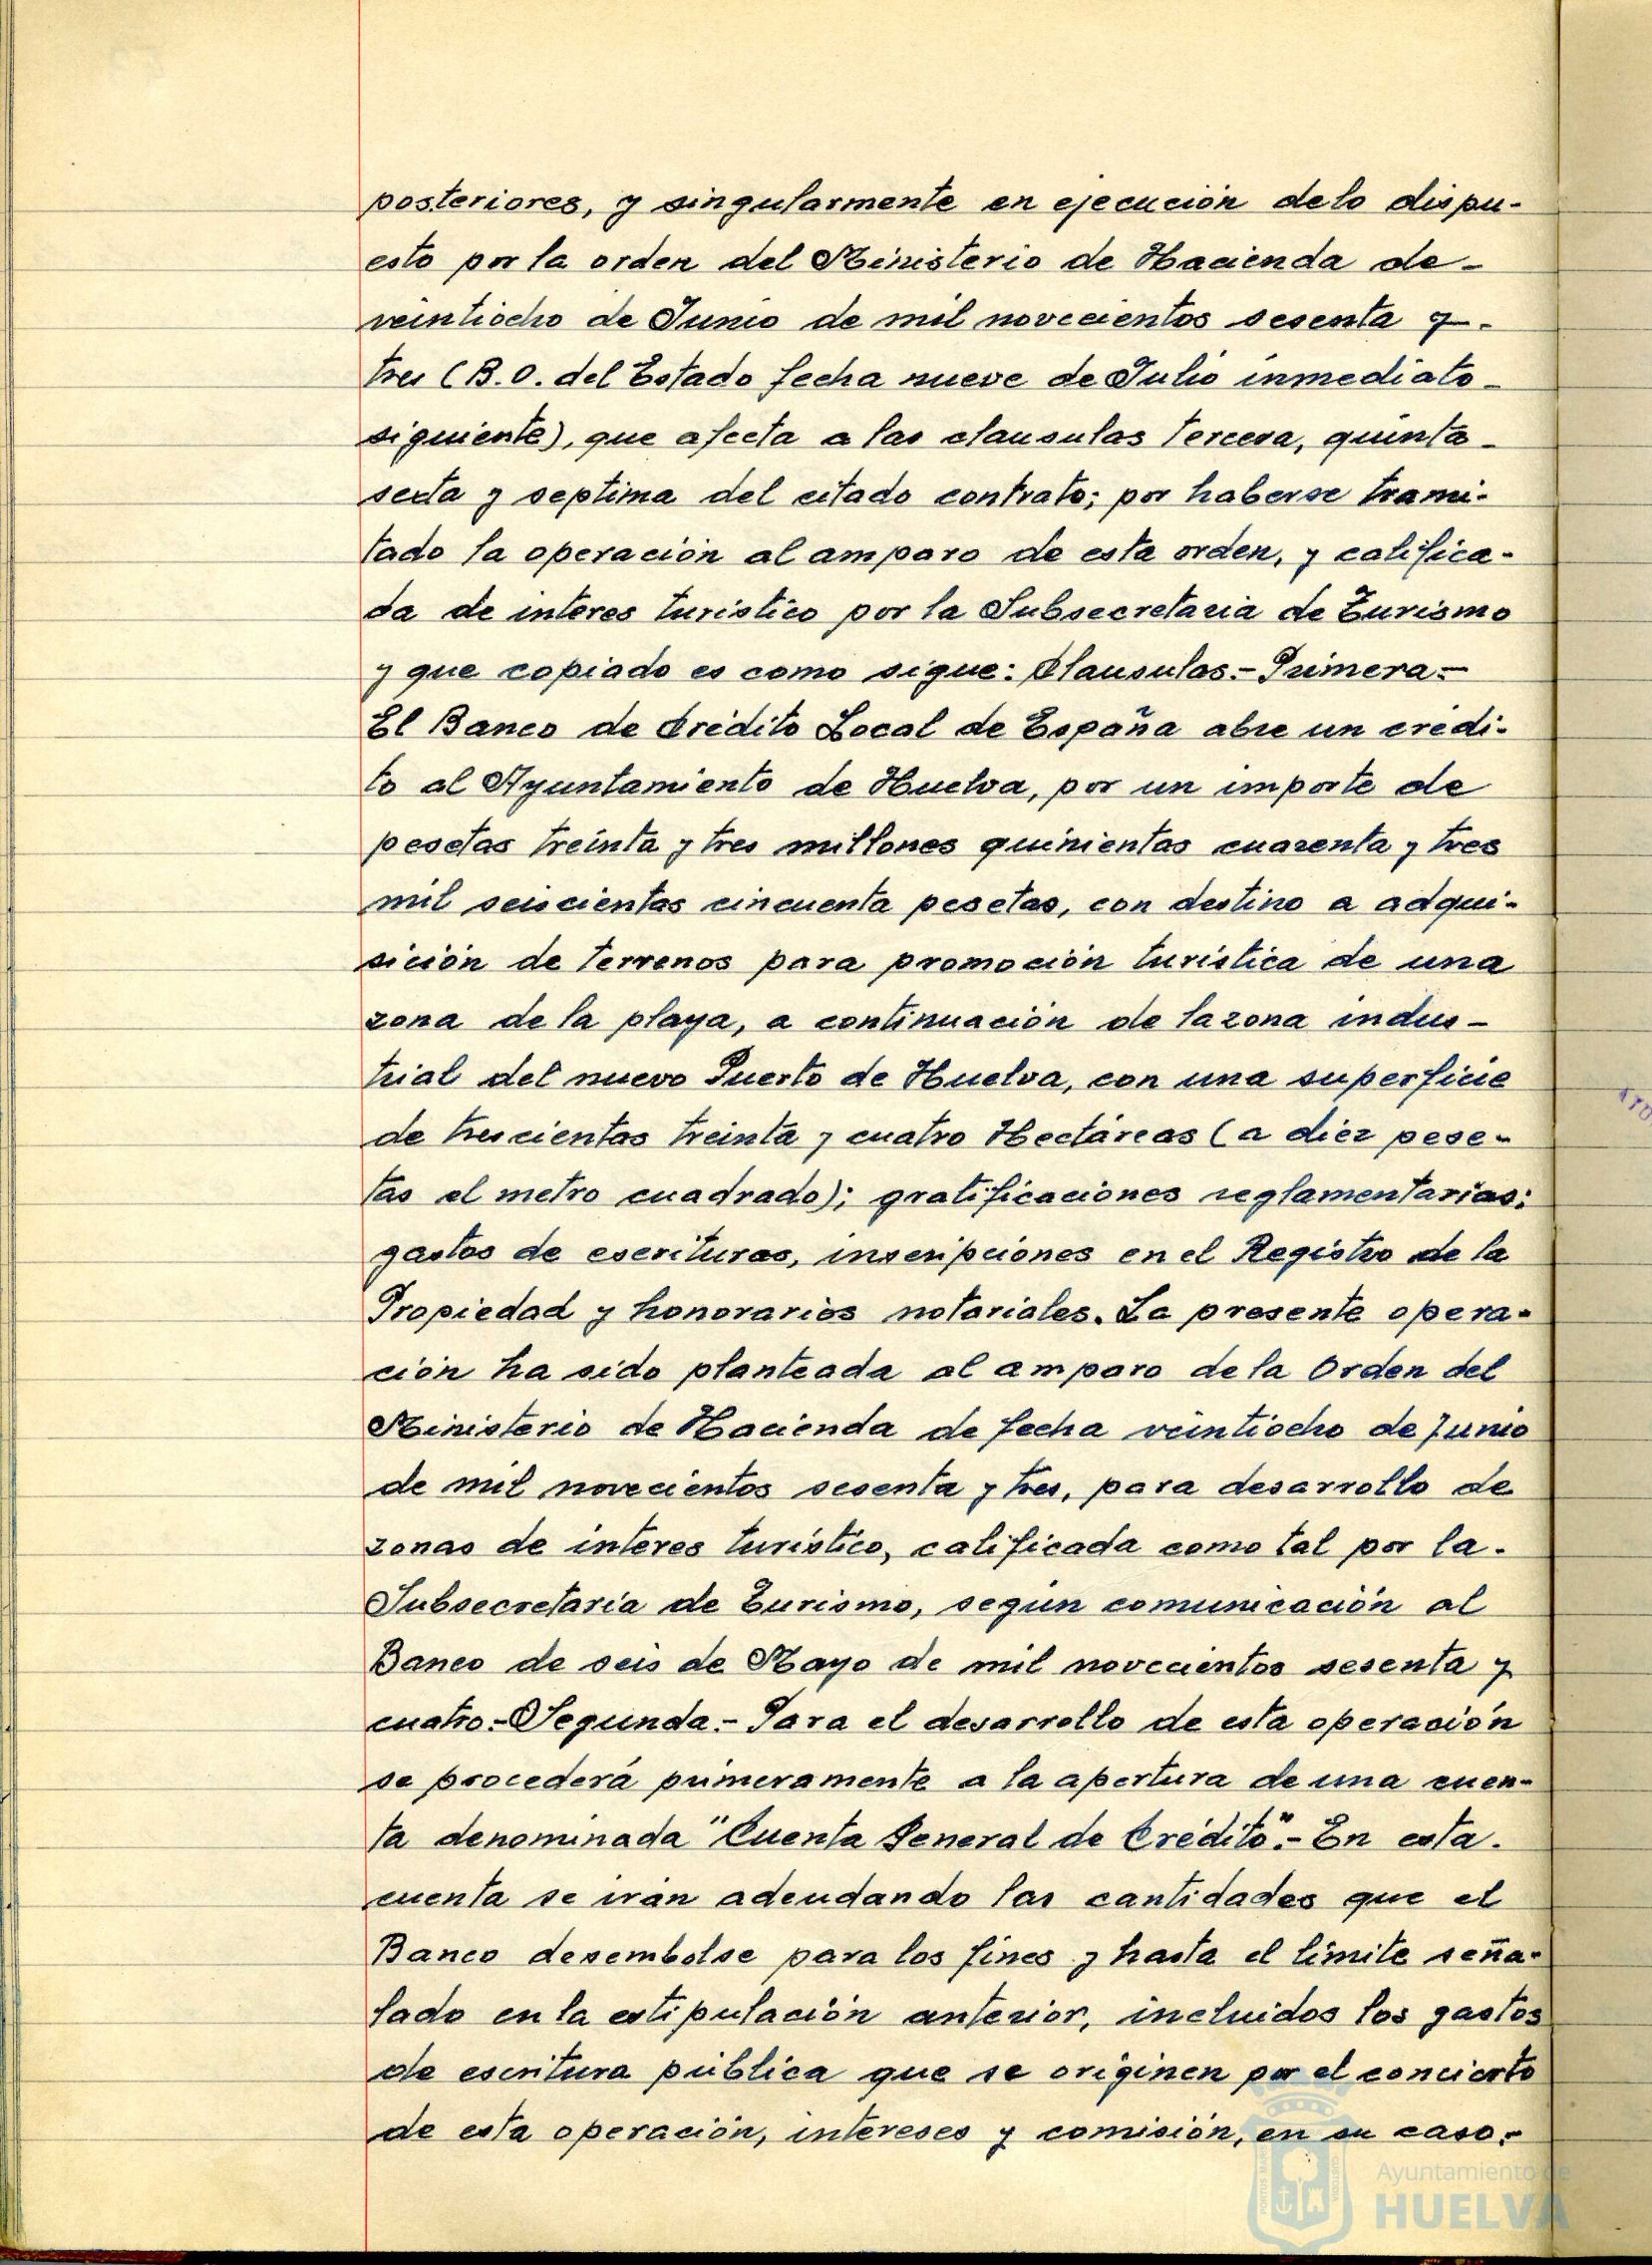 posteriores, y singularmente en ejecución de lo dispu-
esto por la orden del Ministerio de Hacienda de-
veintiocho de Junio de mil novecientos sesenta y-
tres (B.O. del Estado fecha nueve de Julio inmediato-
siguiente), que afecta a las clausulas tercera, quinta-
sexta y septima del citado contrato; por haberse trami-
tado la operación al amparo de esta orden, y califica-
da de interes turistico por la Subsecretaria de Turismo
y que copiado es como sigue: Clausulas.- Primera.-
El Banco de Crédito Local de España abre un credi-
to al Ayuntamiento de Huelva, por un importe de
pesetas treinta y tres millones quinientas cuarenta y tres
mil seiscientas cincuenta pesetas, con destino a adqui-
sición de terrenos para promoción turistica de una
zona de la playa, a continuación de la zona indus-
trial del nuevo Puerto de Huelva, con una superficie
de trescientas treinta y cuatro Hectáreas (a diez pese-
tas el metro cuadrado); gratificaciones reglamentarias;
gastos de escrituras, inscripciones en el Registro de la
Propiedad y honorarios notariales. La presente opera-
ción ha sido planteada al amparo de la Orden del
Ministerio de Hacienda de fecha veintiocho de Junio
de mil novecientos sesenta y tres, para desarrollo de
zonas de interes turístico, calificada como tal por la.
Subsecretaría de Turismo, según comunicación al
Banco de seis de Mayo de mil novecientos sesenta y
cuatro.- Segunda.- Para el desarrollo de esta operación
se procederá primeramente a la apertura de una cuen-
ta denominada "Cuenta General de Crédito".- En esta.
cuenta se irán adeudando las cantidades que el
Banco desembolse para los fines y hasta el límite seña-
lado en la estipulación anterior, incluidos los gastos
de escritura pública que se originen por el concierto
de esta operación, intereses y comisión, en su caso.-
Ayuntamiento de
HUELVA